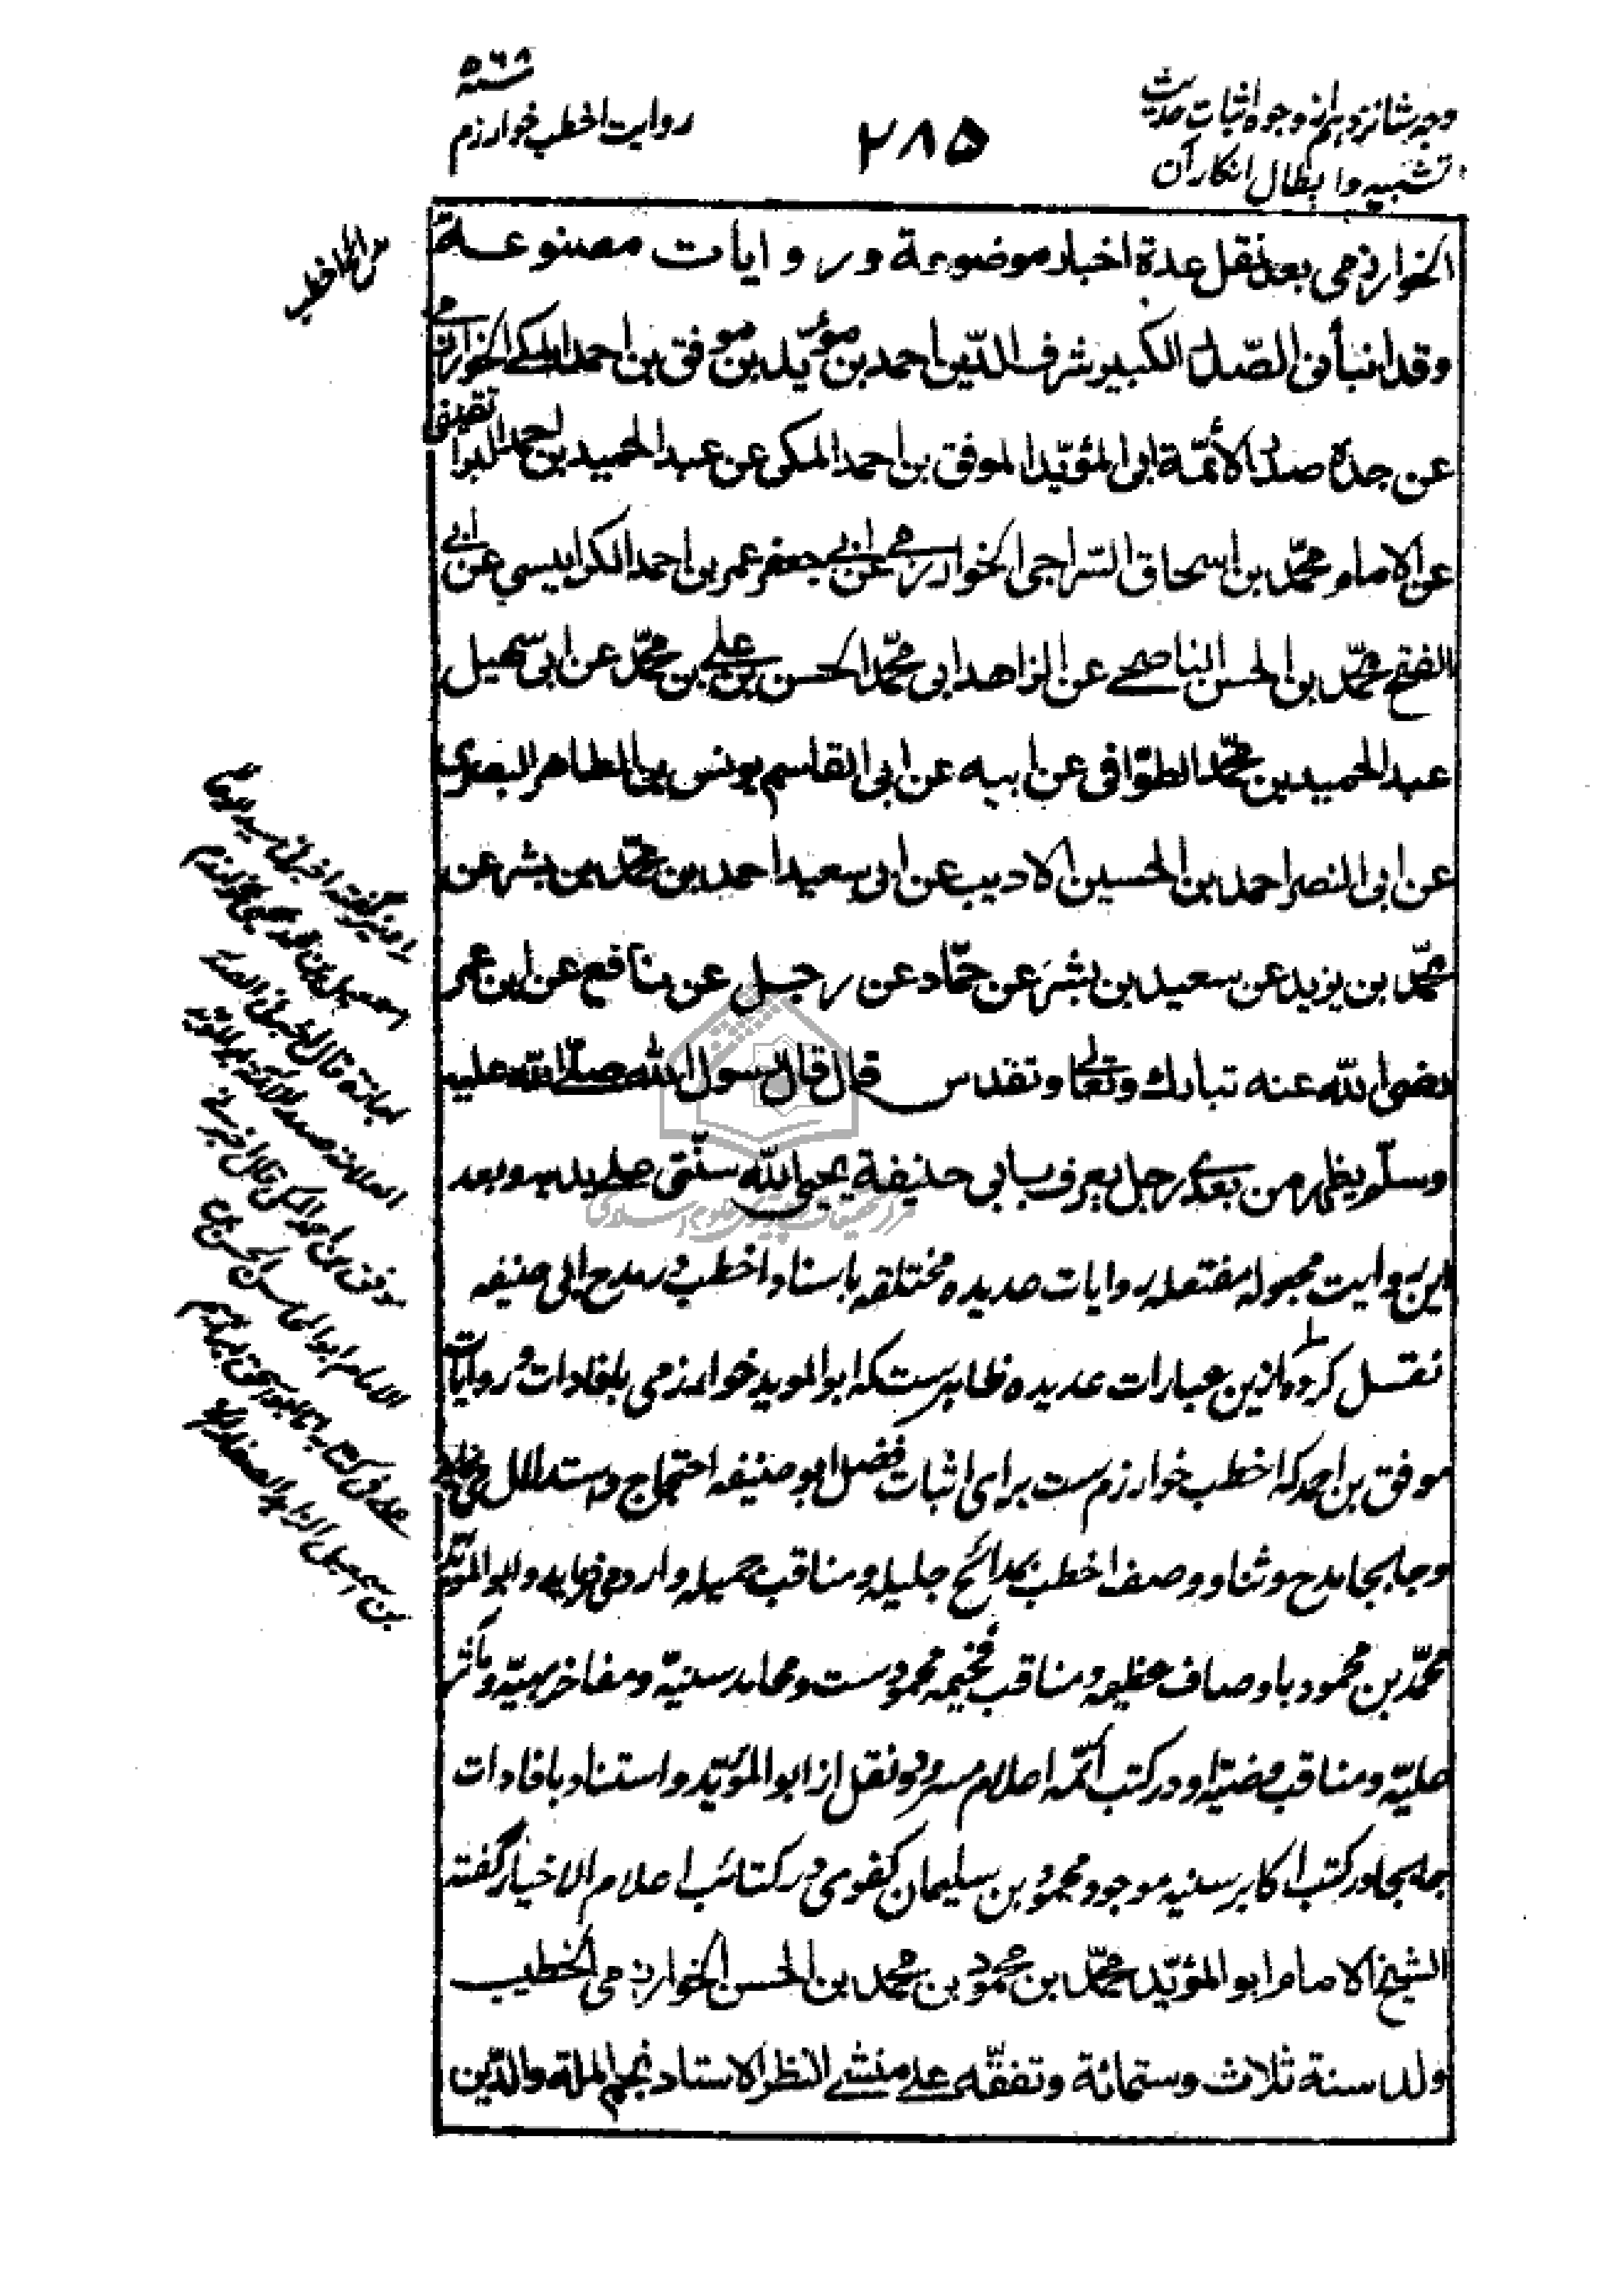 وجہ شانزدہم از وجوہ اثبات حدیث
تشبیہ و ابطال انکار آن
۲۸۵
سنہ ۵۶۸
روایت اخطب خوارزم
الخوارزمی بعد نقل عدة اخبار موضوعة و روایات مصنوعة
وقد انبأنی الصدر الکبیر شرف الدّین احمد بن مؤیّد بن موفق بن احمد المکے الخوارزمے
عن جدہ صدر الأئمّة ابی المؤیّد الموفق بن احمد المکی عن عبد الحمید بن احمد البراتقینی
عن الامام محمّد بن اسحاق السّراجی الخوارزمے عن ابی جعفر عمر بن احمد الکرابیسی عن ابی
الفتح محمّد بن الحسن الناصحے عن الزاهد ابی محمّد الحسن بن علے بن محمّد عن ابی سهیل
عبد الحمید بن محمّد الطوّافی عن ابیه عن ابی القاسم یونس بن الطاهر البصری
عن ابی النصر احمد بن الحسین الادیب عن ابی سعید احمد بن محمّد بن بشر عن
محمّد بن یزید عن سعید بن بشر عن حمّاد عن رجل عن نافع عن ابن عمر
رضی الله عنه تبارك وتعالی وتقدس قال قال رسول الله صلّے الله علیه
وسلّم یظهر من بعدے رجل یعرف بابی حنیفة یحیی الله سنّتی علے یدیه و بعد
این روایت مجعولہ مفتعلہ روایات عدیدہ مختلقہ باسناد اخطب در مدح ابی حنیفہ
نقل کردہ ازین عبارات عدیدہ ظاہرست کہ ابو الموید خوارزمی بافادات و روایات
موفق بن احمد کہ اخطب خوارزم ست برای اثبات فضل ابو حنیفہ احتجاج و استدلال می نماید
و جابجا مدح و ثنا و وصف اخطب بمدائح جلیلہ و مناقب جمیلہ وارد می فرماید و ابو المؤیّد
محمّد بن محمود باوصاف عظیمہ و مناقب فخیمہ محمودست و محامد سنیّہ و مفاخر بہیّہ و مآثر
علیّہ و مناقب مضیّہ او در کتب ائمّہ اعلام مسرود و نقل از ابو المؤیّد و استناد بافادات
جابجا در کتب اکابر سنیہ موجود محمود بن سلیمان کفوی در کتائب اعلام الاخیار گفتہ
الشیخ الامام ابو المؤیّد محمّد بن محمود بن محمد بن الحسن الخوارزمی الخطیب
ولد سنة ثلاث وستمائة وتفقّه علے منشے النظر الاستاد نجم الملة والدّین